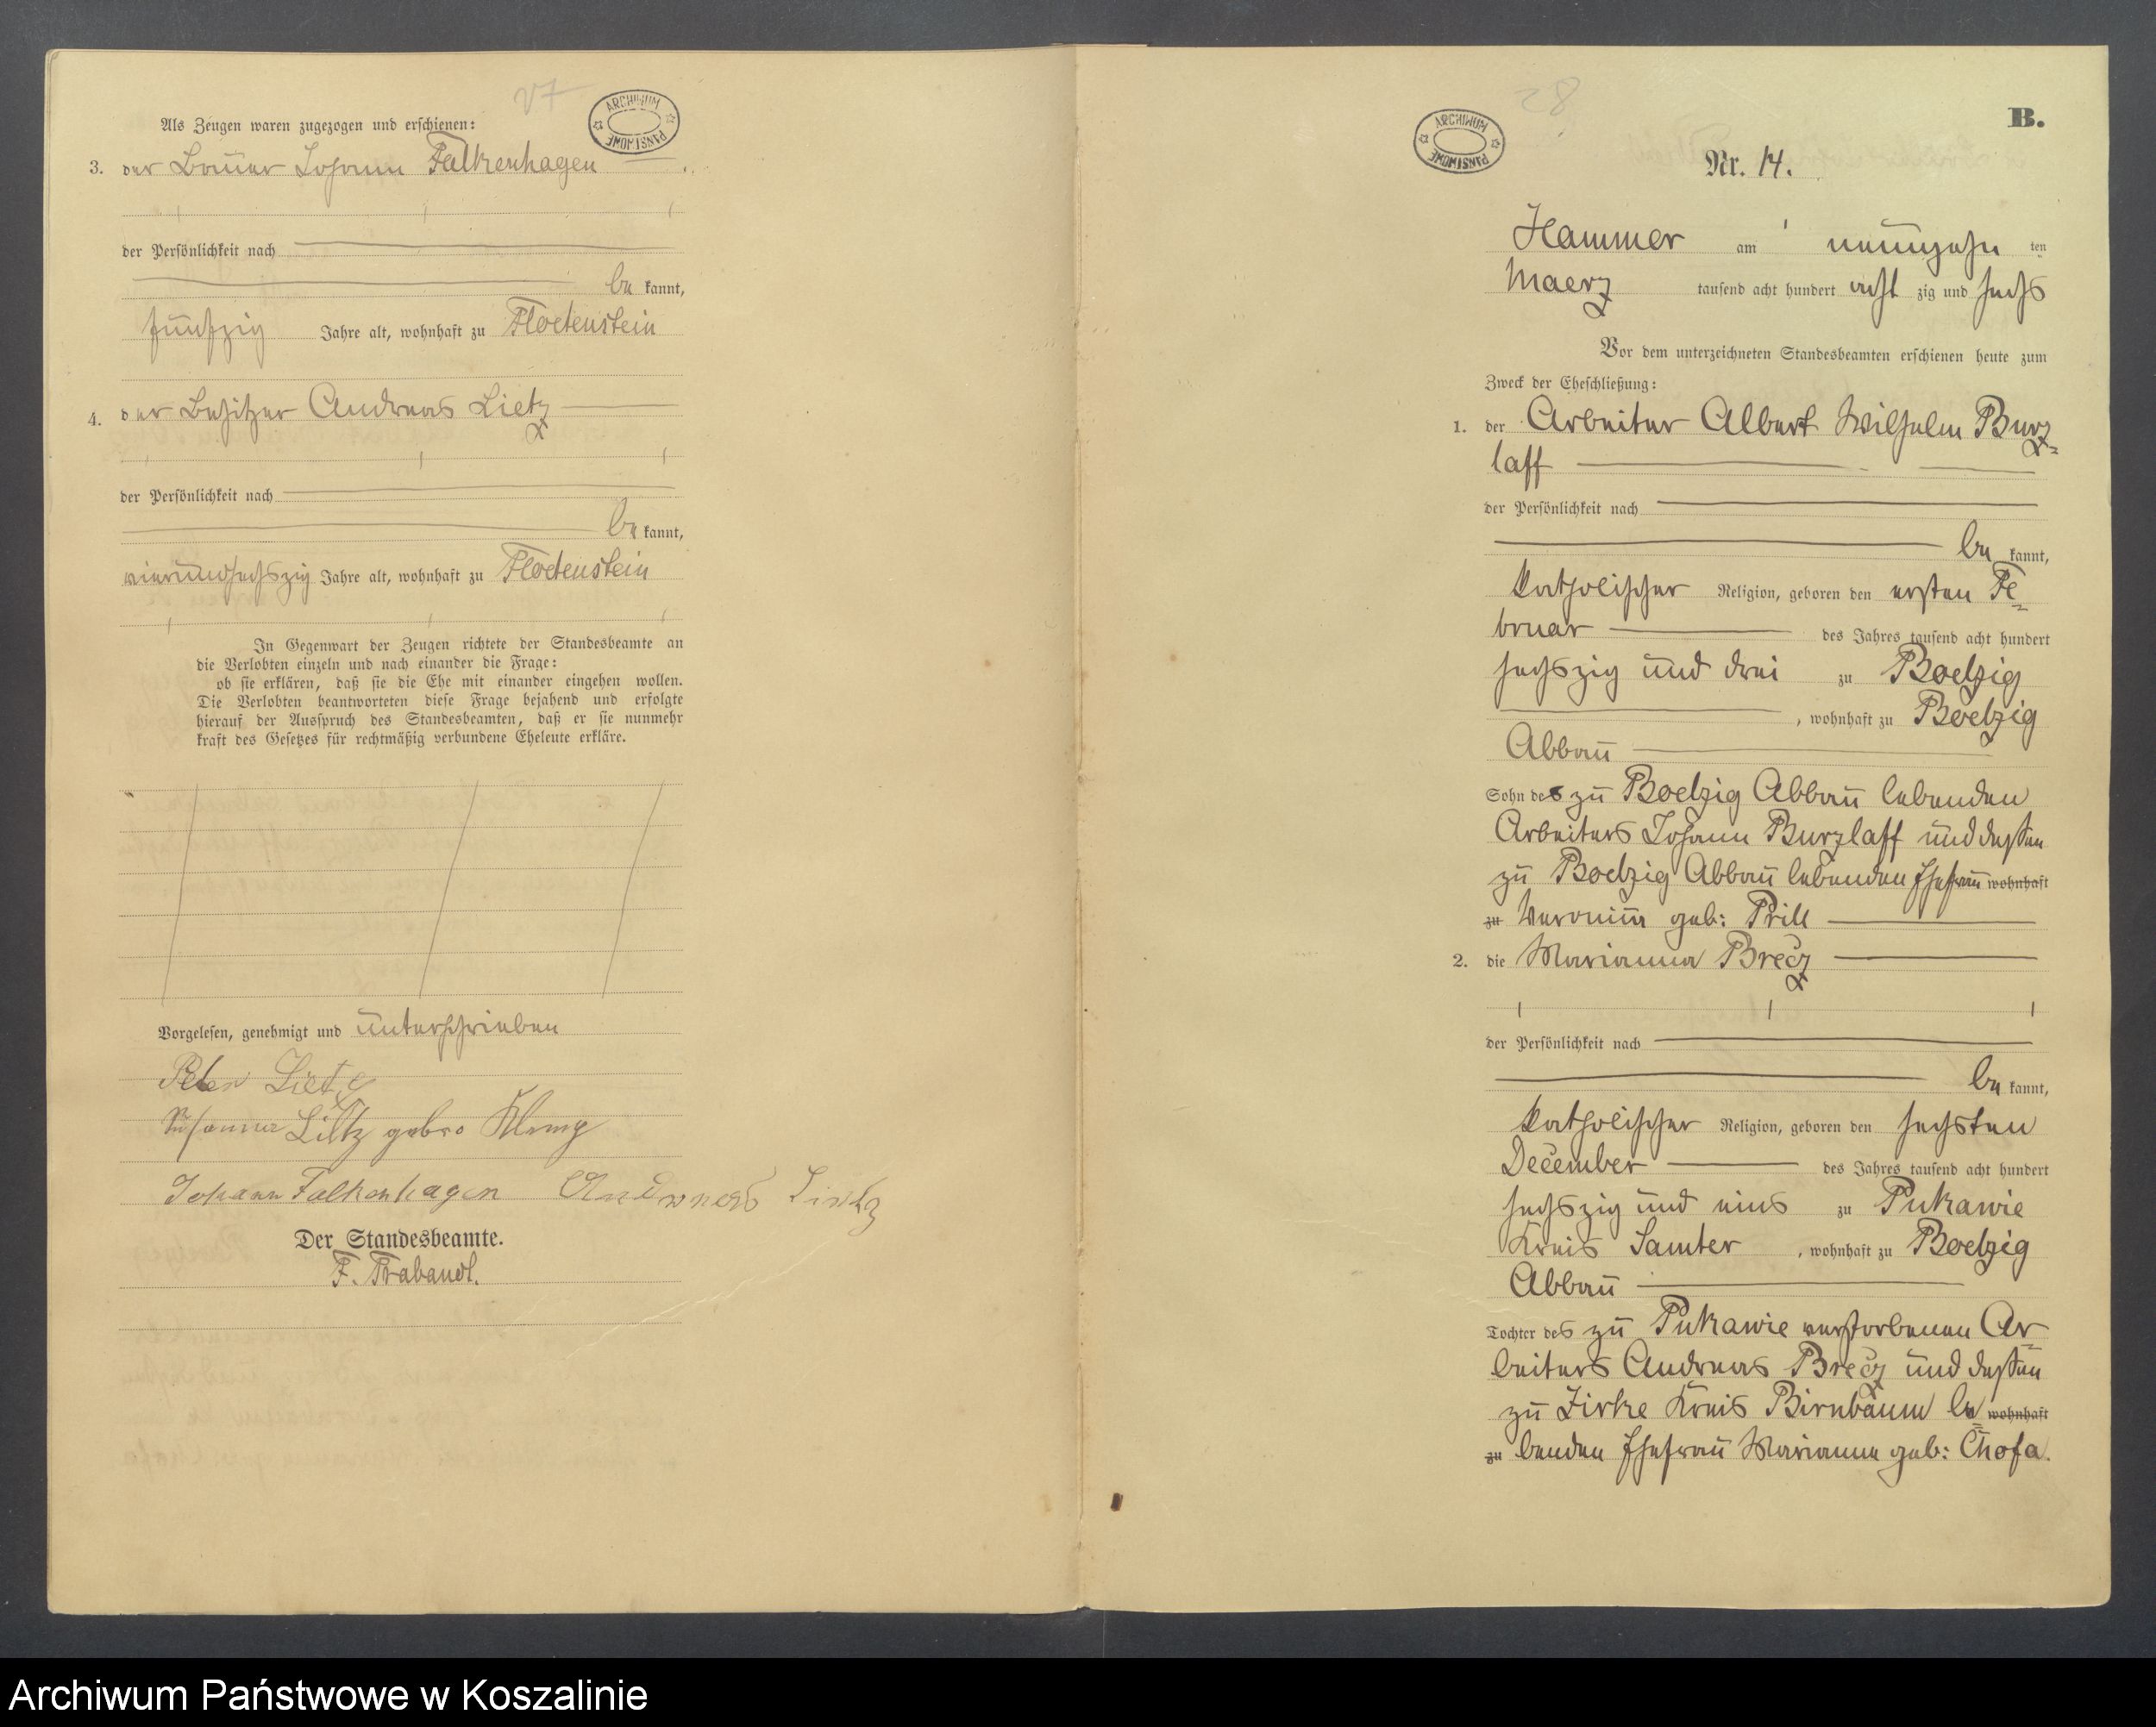 27
ARCHIWUM PAŃSTWOWE
Als Zeugen waren zugezogen und erschienen:
3. der Bauer Johann Falkenhagen
der Persönlichkeit nach
be kannt,
fünfzig Jahre alt, wohnhaft zu Floetenstein
4. der Besitzer Andreas Lietz
der Persönlichkeit nach
be kannt,
vierundsechszig Jahre alt, wohnhaft zu Floetenstein
In Gegenwart der Zeugen richtete der Standesbeamte an
die Verlobten einzeln und nach einander die Frage:
ob sie erklären, daß sie die Ehe mit einander eingehen wollen.
Die Verlobten beantworteten diese Frage bejahend und erfolgte
hierauf der Ausspruch des Standesbeamten, daß er sie nunmehr
kraft des Gesetzes für rechtmäßig verbundene Eheleute erkläre.
Vorgelesen, genehmigt und unterschrieben
Peter Lietz
Susanna Lietz
Johann Falkenhagen Andreas Lietz
Der Standesbeamte.
F. Trabandt.
28
ARCHIWUM PAŃSTWOWE
B.
Nr. 14.
Hammer am neunzehn ten
Maerz tausend acht hundert acht zig und sechs
Vor dem unterzeichneten Standesbeamten erschienen heute zum
Zweck der Eheschließung:
1. der Arbeiter Albert Wilhelm Burz=
laff
der Persönlichkeit nach
be kannt,
katholischer Religion, geboren den ersten Fe=
bruar des Jahres tausend acht hundert
sechszig und drei zu Boelzig
, wohnhaft zu Boelzig
Abbau
Sohn des zu Boelzig Abbau lebenden
Arbeiters Johann Burzlaff und dessen
zu Boelzig Abbau lebenden Ehefrau wohnhaft
zu Veronica geb: Prill
2. die Marianna Brecz
der Persönlichkeit nach
be kannt,
katholischer Religion, geboren den sechsten
December des Jahres tausend acht hundert
sechszig und eins zu Pukawie
Kreis Samter , wohnhaft zu Boelzig
Abbau
Tochter des zu Pukawie verstorbenen Ar=
beiters Andreas Brecz und dessen
zu Zirke Kreis Birnbaum le= wohnhaft
zu benden Ehefrau Marianna geb: Chofa.
Archiwum Państwowe w Koszalinie